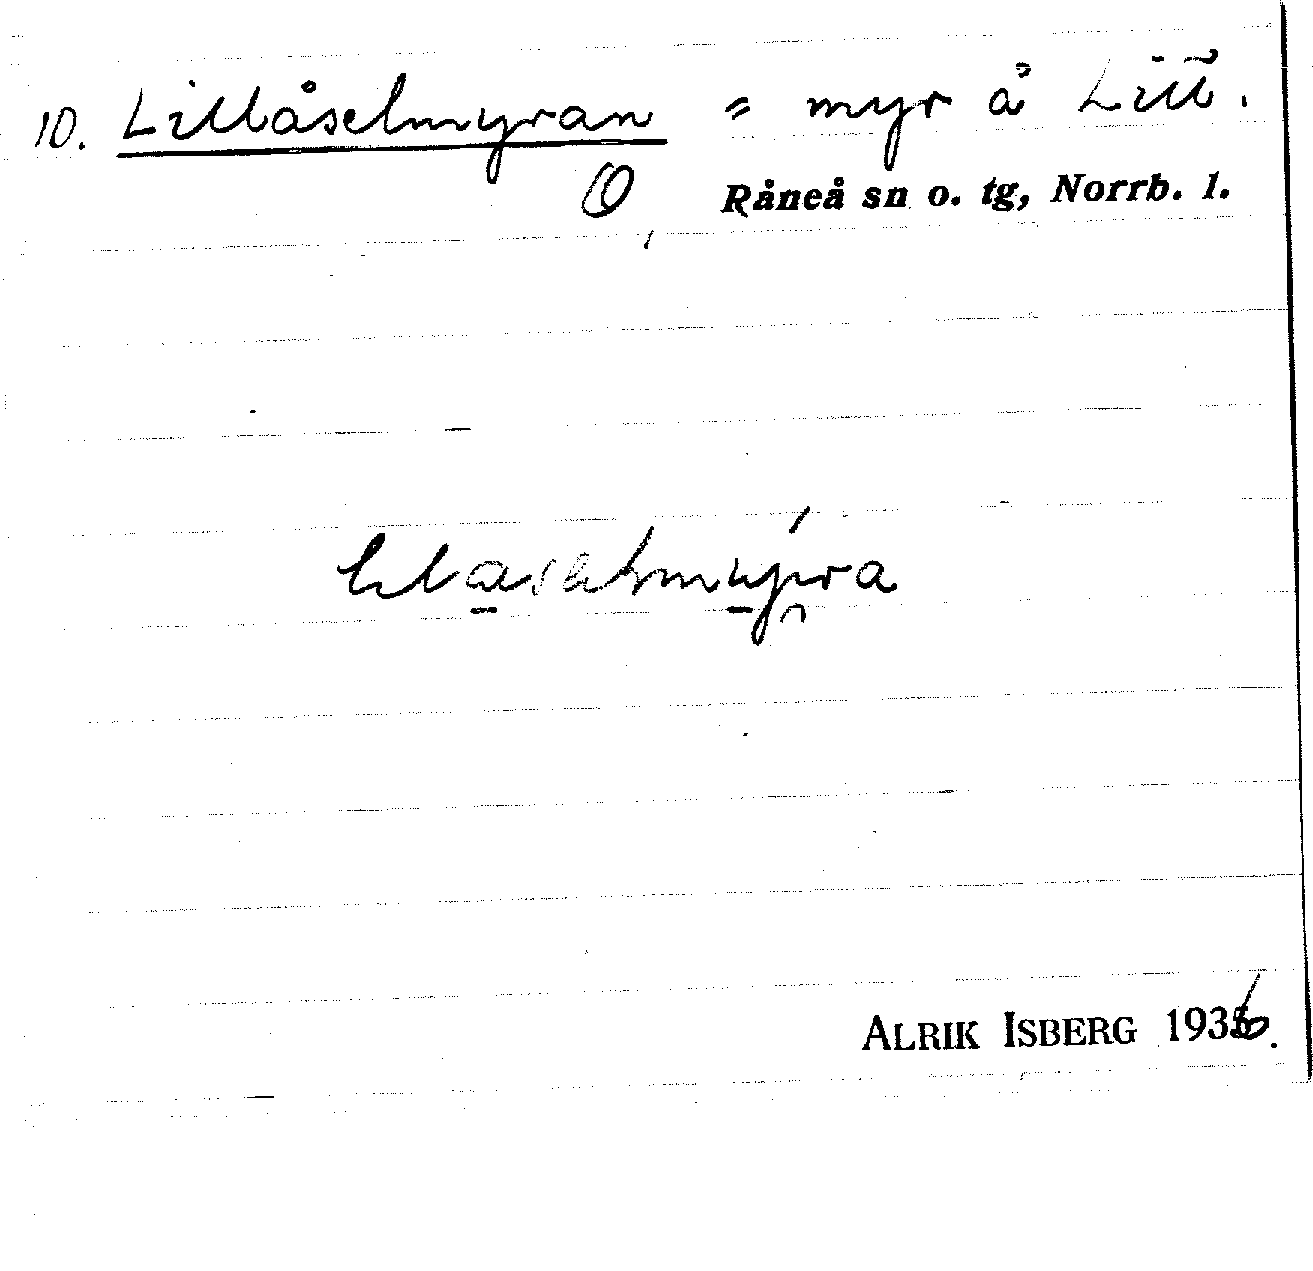 10. Lillåselmyran = myr å Litt.
O Råneå sn o. tg, Norrb. l.
ALRIK ISBERG 1936.